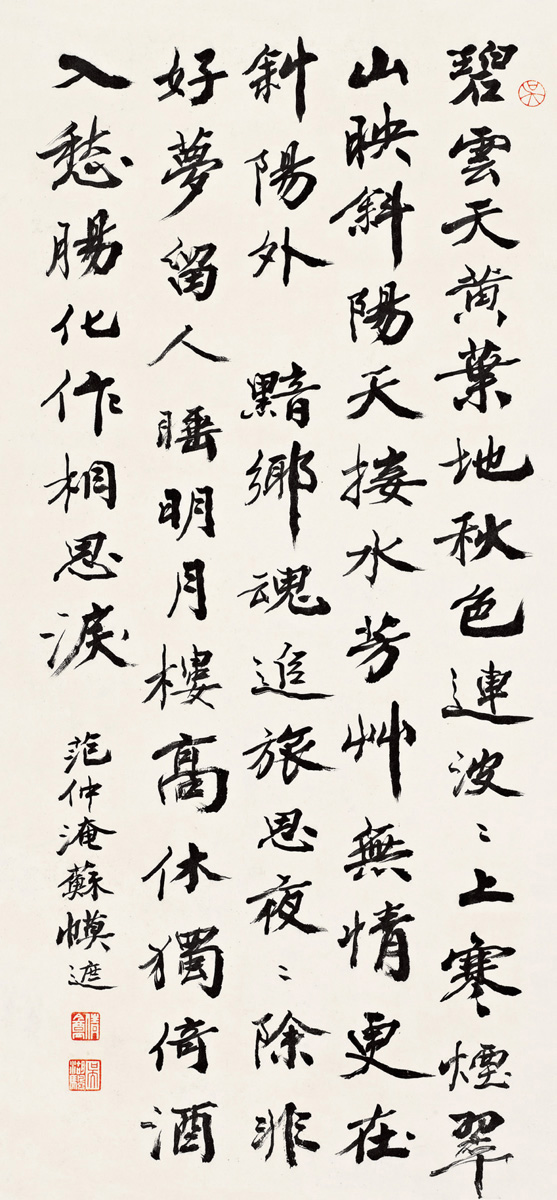 吳
碧雲天黃葉地秋色連波〻上寒煙翠
山映斜陽天接水芳艸無情更在
斜陽外 黯鄉魂追旅思夜〻除非
好夢留人睡明月樓高休獨倚酒
入愁腸化作相思淚
范仲淹蘇幙遮
倩盦
吳湖颿